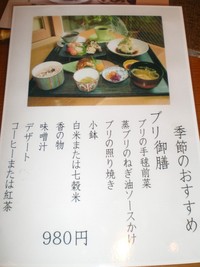 季節のおすすめ
ブリ御膳
ブリの手毬前菜
蒸ブリのねぎ油ソースかけ
ブリの照り焼き
小鉢
白米または七穀米
香の物
味噌汁
デザート
コーヒーまたは紅茶
980円